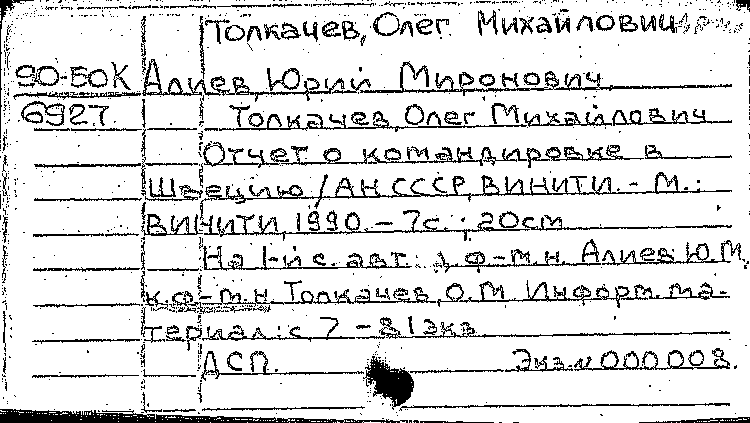 Толкачев, Олег Михайлович
90-БОК Алиев, Юрий Миронович,
6927 Толкачев, Олег Михайлович
Отчет о командировке в
Швецию / АН СССР, ВИНИТИ. - М.:
ВИНИТИ, 1990. - 7 с.; 20 см
На 1-й с. авт.: д.ф-м.н. Алиев Ю.М.,
к.ф-м.н. Толкачев, О.М. Информ. ма-
териал: с. 7 - 8 1 экз.
ДСП. Экз. N 000008.